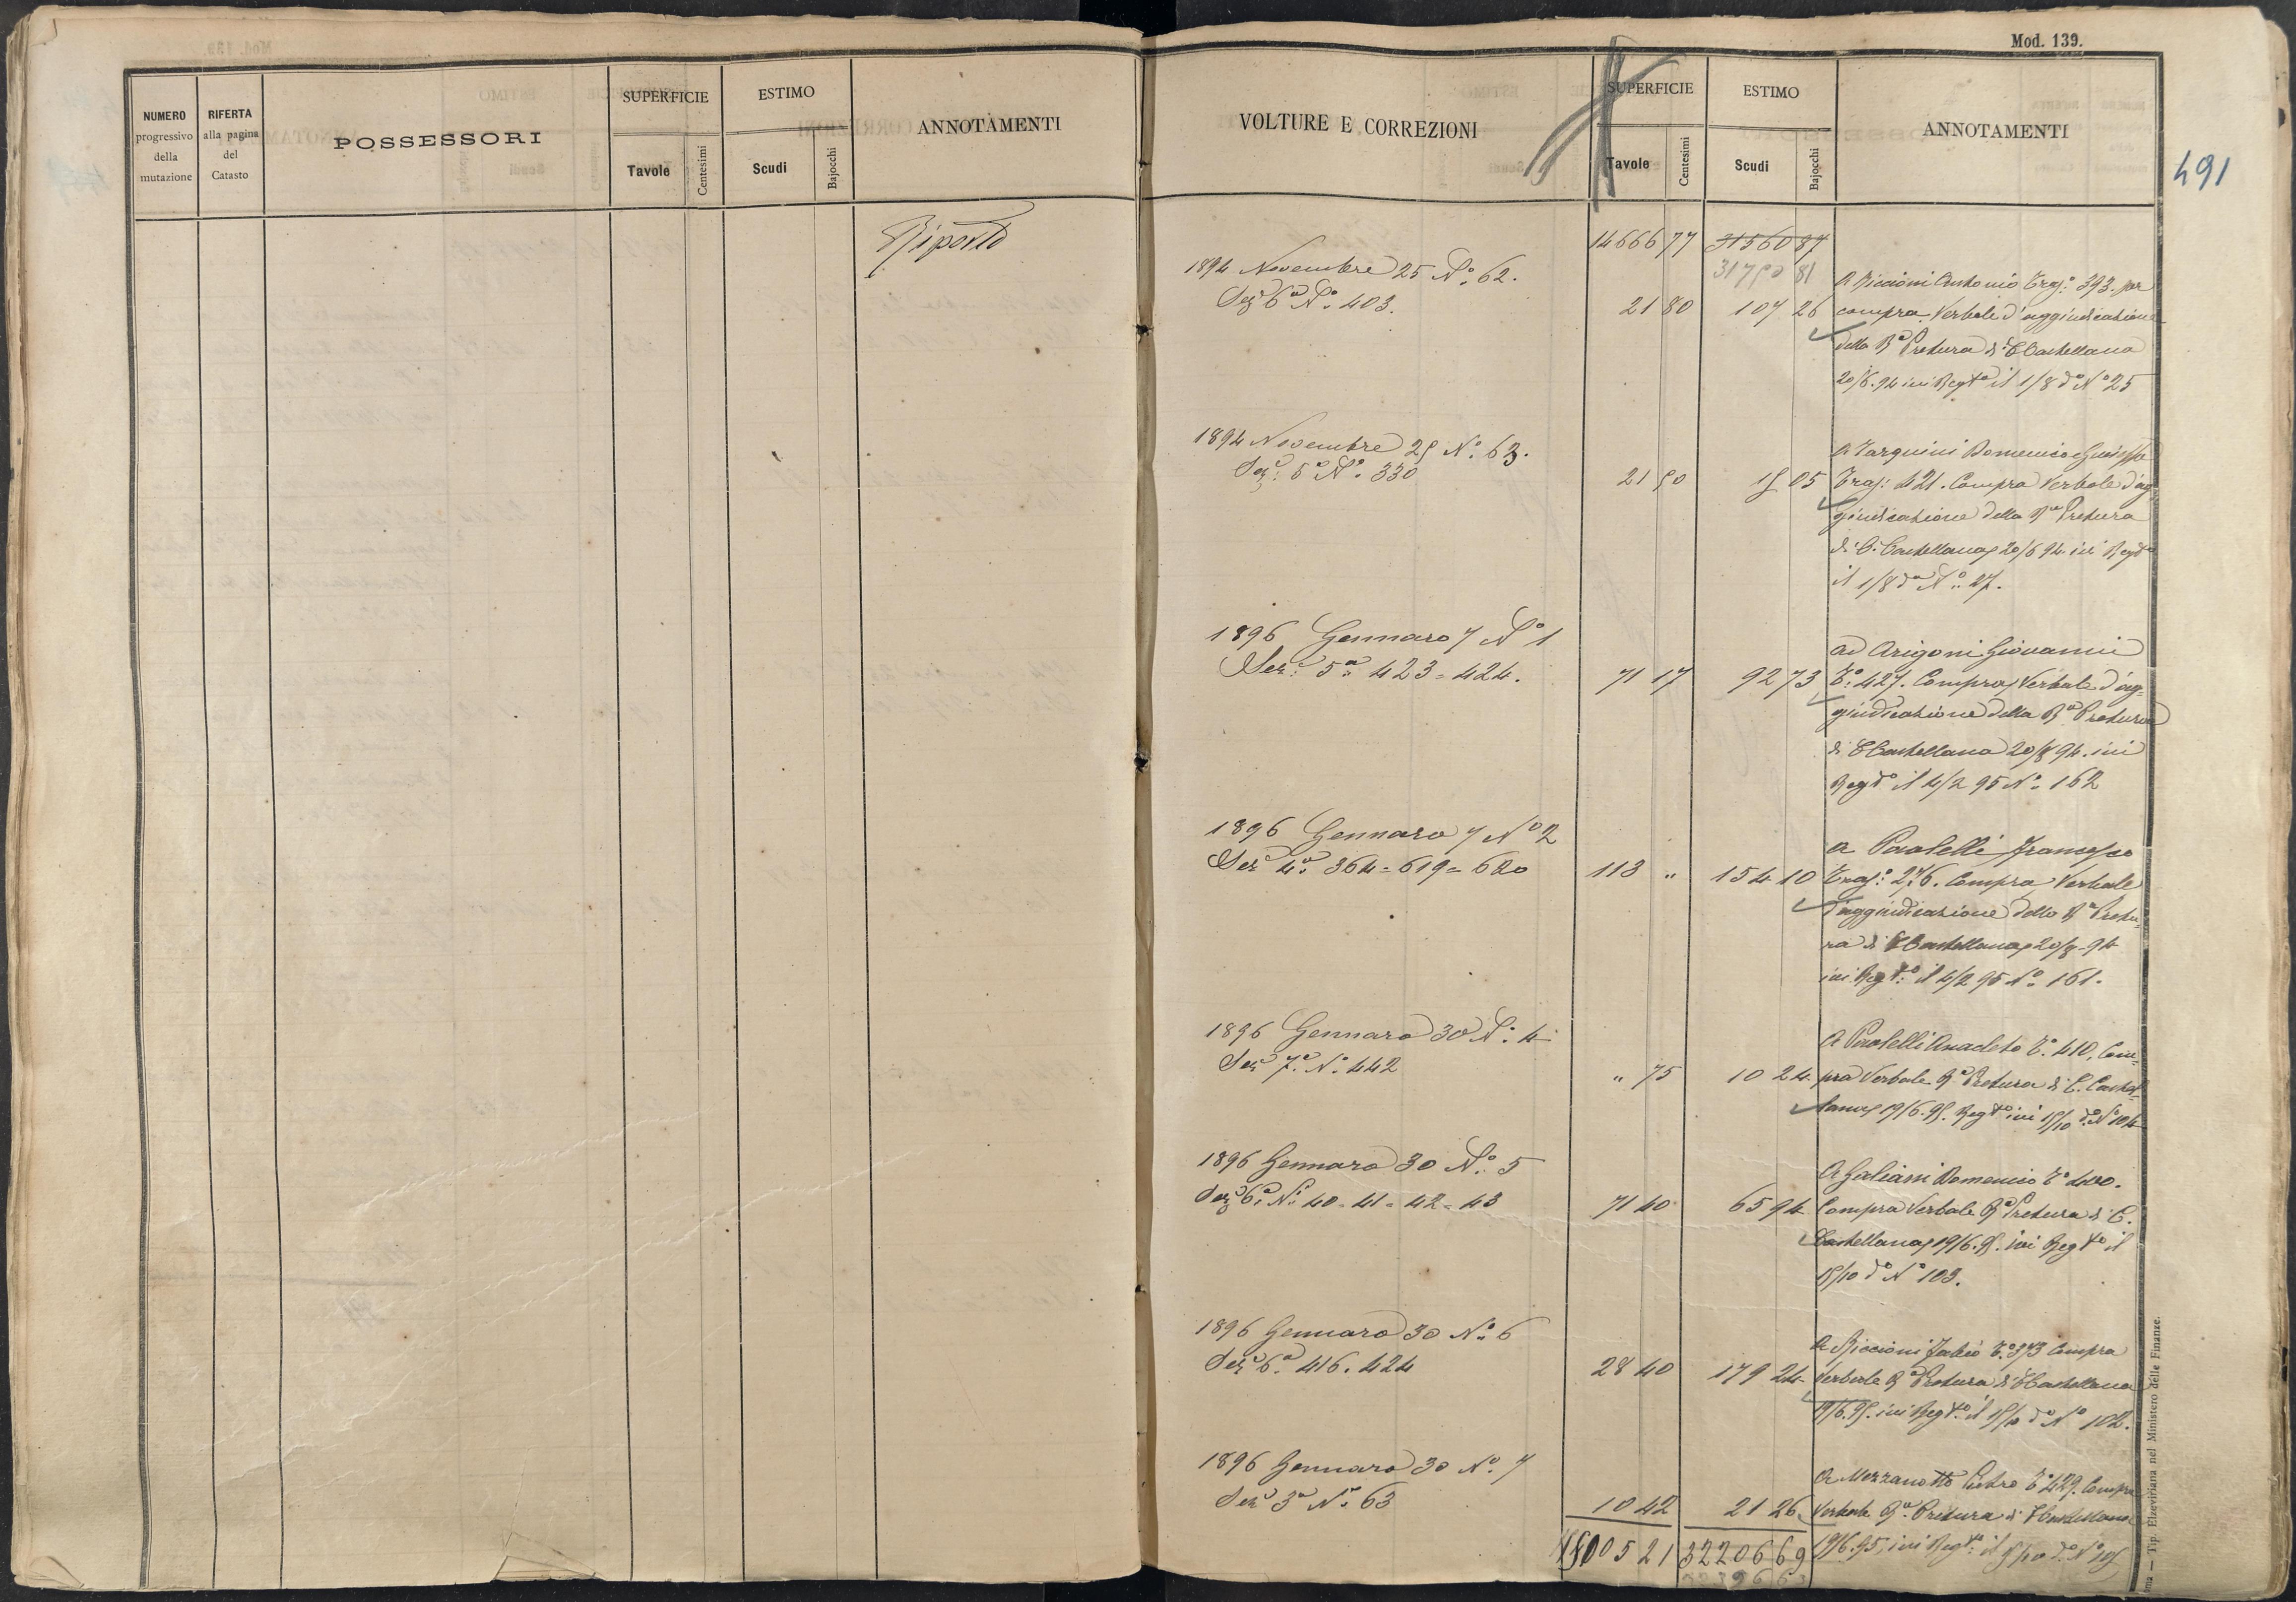 NUMERO
progressivo
della
mutazione
RIFERTA
alla pagina
del
Catasto
POSSESSORI
SUPERFICIE
Tavole
Centesimi
ESTIMO
Scudi
Bajocchi
ANNOTAMENTI
Riporto
Mod. 139.
VOLTURE E CORREZIONI
SUPERFICIE
Tavole
Centesimi
ESTIMO
Scudi
Bajocchi
ANNOTAMENTI
491
14666 77 31560 87
1894 Novembre 25 Nº 62.
Seze 6ª Nº 403.
21 80 107 26
A Piccioni Antonio Trasº 393. per
compra Verbale d'aggiudicazione
della Rª Pretura di CCastellana
20/6.94 ivi Regto il 1/8 dº Nº 25
1894 Novembre 25 Nº 63.
Sezº 5ª Nº 330
21 50 15 05
A Tarquini Domenico Giuseppe
Tras: 421. Compra Verbale d'ag
giudicazione della Rª Pretura
di C. Castellana 20/6 94 ivi Regto
il 1/8 dº Nº 27.
1896 Gennaro 7 Nº 1
Seze 5ª 423 = 424.
71 17 92 73
ad Arigoni Giovanni
Tº 427. Compra Verbale d'ag=
giudicazione della Rª Pretura
di CCastellana 20/8 94. ivi
Regto il 4/2 95 Nº 162
1896 Gennaro 7 Nº 2
Seze 4ª 364 = 619 = 620
113 " 154 10
a Paolelli Francesco
Trasº 276. Compra Verbale
d'aggiudicazione della Rª Pretu
ra di CCastellana 20/8-94
ivi Regto il 4/2 95 Nº 161.
1896 Gennaro 30 Nº 4
Seze 7ª Nº 442
" 75 10 24
A Paolelli Anacleto Tº 410, Com=
pra Verbale Rª Pretura di C. Castel=
lana 19/6.95. Regto ivi 15/10 dº Nº 104
1896 Gennaro 30 Nº 5
Seze 6ª Nº 40 = 41 = 42 = 43
71 40 65 94
A Galiani Domenico Tº 400.
Compra Verbale Rª Pretura di C.
Castellana 19/6.95. ivi Regto il
15/10 dº Nº 103.
1896 Gennaro 30 Nº 6
Seze 6ª 416. 424
28 40 179 24
A Piccioni Fabio Tº 373 Compra
Verbale Rª Pretura di CCastellana
19/6.95. ivi Regto il 15/10 dº Nº 102.
1896 Gennaro 30 Nº 7
Seze 3ª Nº 63
10 42 21 26
A Mezzanotte Pietro Tº 429. Compra
Verbale Rª Pretura di CCastellana
19/6.95, ivi Regto il
15005 21 32206 69
Tip. Elzeviriana nel Ministero delle Finanze.